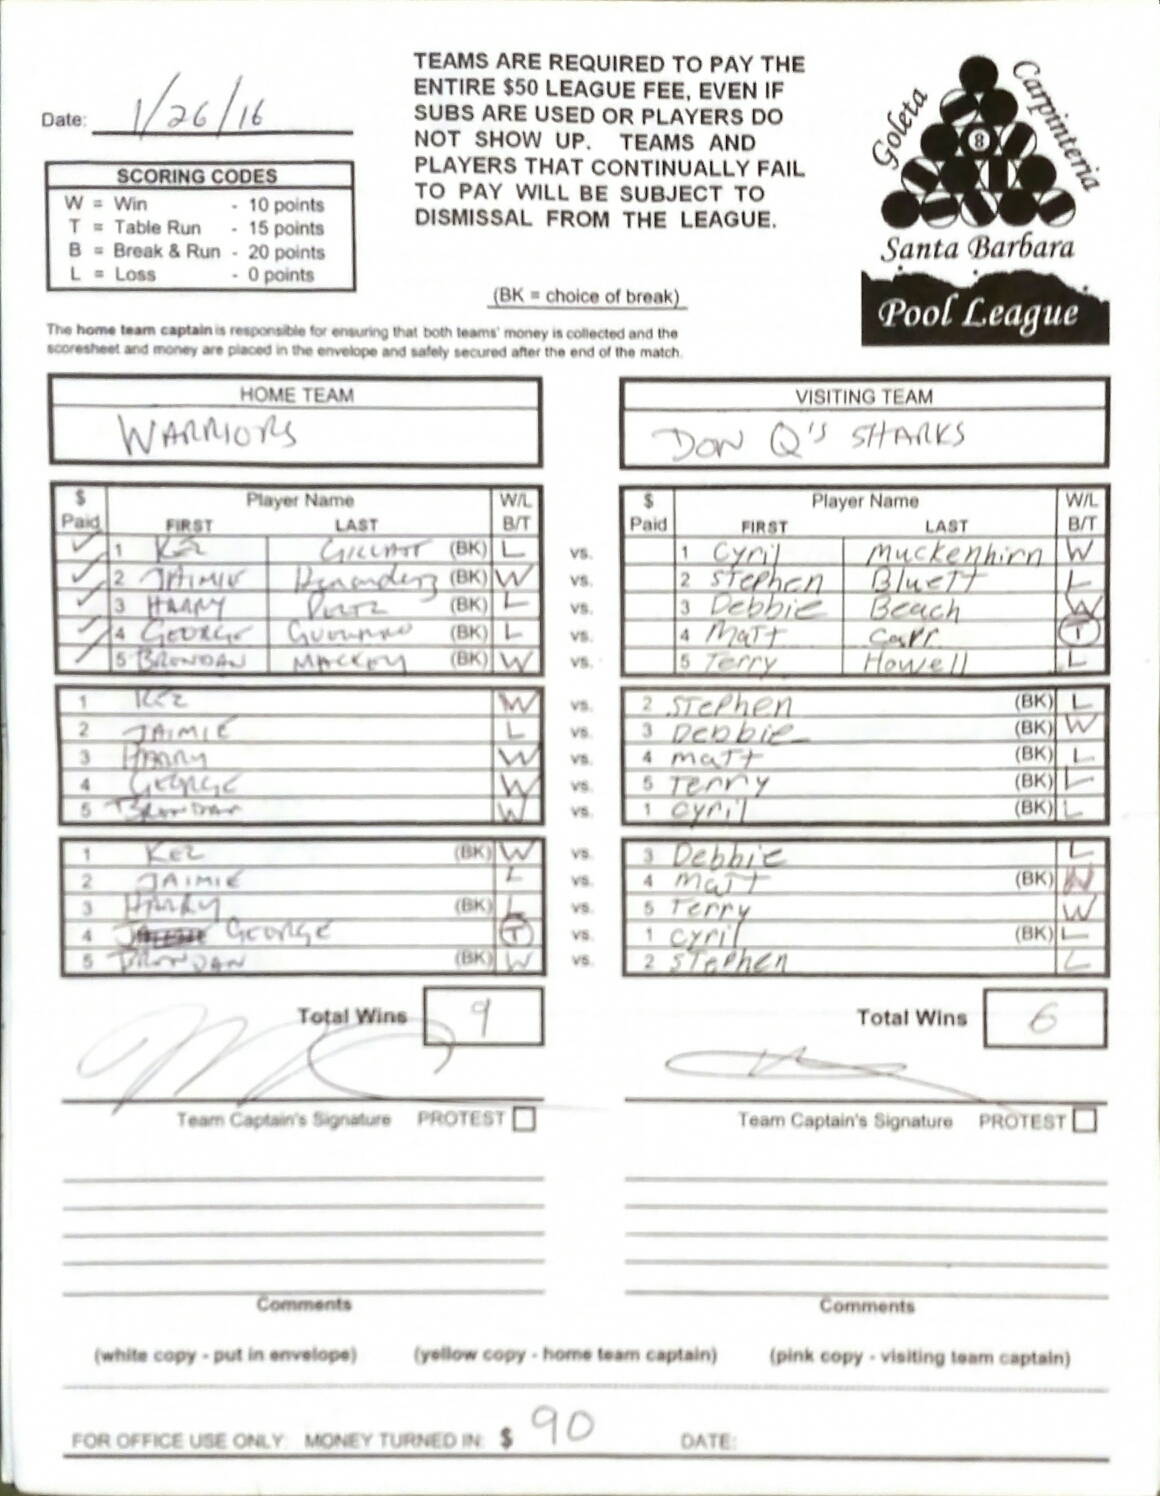 TEAMS ARE REQUIRED TO PAY THE
ENTIRE $50 LEAGUE FEE, EVEN IF
SUBS ARE USED OR PLAYERS DO
NOT SHOW UP. TEAMS AND
PLAYERS THAT CONTINUALLY FAIL
TO PAY WILL BE SUBJECT TO
DISMISSAL FROM THE LEAGUE.
Goleta
Carpinteria
8
Santa Barbara
Pool League
Date: 1/26/16
SCORING CODES
W = Win - 10 points
T = Table Run - 15 points
B = Break & Run - 20 points
L = Loss - 0 points
(BK = choice of break)
The home team captain is responsible for ensuring that both teams' money is collected and the
scoresheet and money are placed in the envelope and safely secured after the end of the match.
HOME TEAM VISITING TEAM
WARRIORS DON Q'S SHARKS
$ Player Name W/L $ Player Name W/L
Paid FIRST LAST B/T Paid FIRST LAST B/T
1 KEZ (BK) L vs. 1 Cyril Muckenhirn W
2 JAIMIE (BK) W vs. 2 Stephen Bluett L
3 HARRY (BK) L vs. 3 Debbie Beach W
4 GEORGE (BK) L vs. 4 Matt Carr T
5 BRENDAN MACKEY (BK) W vs. 5 Terry Howell L
1 KEZ W vs. 2 Stephen (BK) L
2 JAIMIE L vs. 3 Debbie (BK) W
3 HARRY W vs. 4 Matt (BK) L
4 GEORGE W vs. 5 Terry (BK) L
5 BRENDAN W vs. 1 Cyril (BK) L
1 KEZ (BK) W vs. 3 Debbie L
2 JAIMIE L vs. 4 Matt (BK) W
3 HARRY (BK) L vs. 5 Terry W
4 GEORGE T vs. 1 Cyril (BK) L
5 BRENDAN (BK) W vs. 2 Stephen L
Total Wins 9 Total Wins 6
Team Captain's Signature PROTEST Team Captain's Signature PROTEST
Comments Comments
(white copy - put in envelope) (yellow copy - home team captain) (pink copy - visiting team captain)
FOR OFFICE USE ONLY: MONEY TURNED IN: $ 90 DATE: